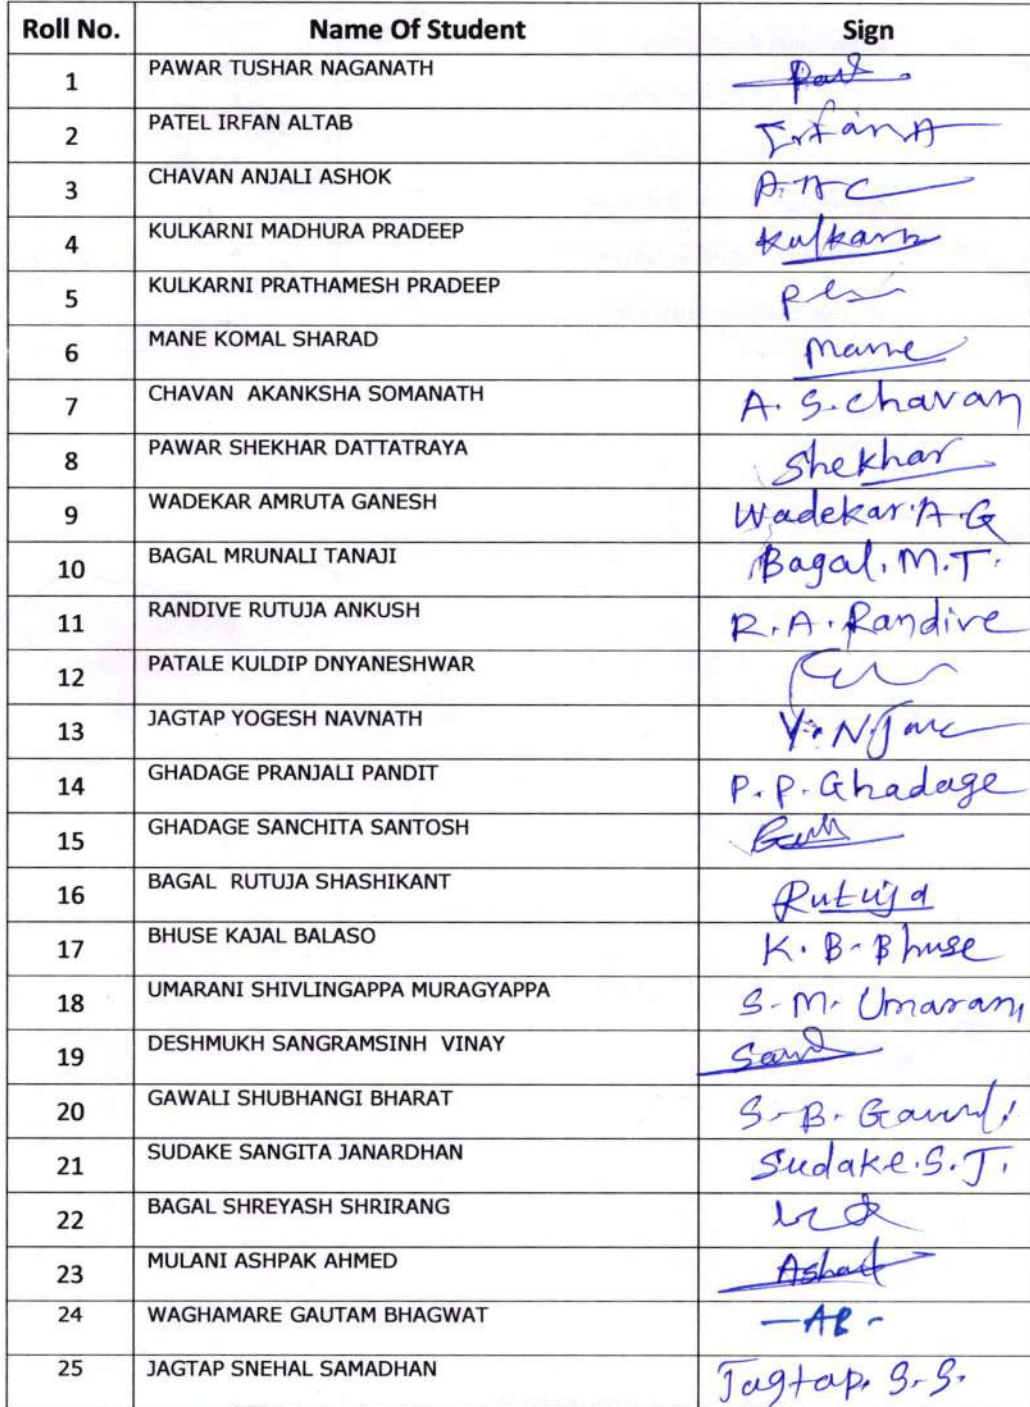 Roll No. Name Of Student Sign
1 PAWAR TUSHAR NAGANATH
2 PATEL IRFAN ALTAB Irfan A
3 CHAVAN ANJALI ASHOK A. A C
4 KULKARNI MADHURA PRADEEP Kulkarni
5 KULKARNI PRATHAMESH PRADEEP
6 MANE KOMAL SHARAD Mane
7 CHAVAN AKANKSHA SOMANATH A. S. Chavan
8 PAWAR SHEKHAR DATTATRAYA Shekhar
9 WADEKAR AMRUTA GANESH Wadekar. A. G
10 BAGAL MRUNALI TANAJI Bagal. M. T.
11 RANDIVE RUTUJA ANKUSH R. A. Randive
12 PATALE KULDIP DNYANESHWAR
13 JAGTAP YOGESH NAVNATH Y. N.
14 GHADAGE PRANJALI PANDIT P. P. Ghadage
15 GHADAGE SANCHITA SANTOSH
16 BAGAL RUTUJA SHASHIKANT Rutuja
17 BHUSE KAJAL BALASO K. B. Bhuse
18 UMARANI SHIVLINGAPPA MURAGYAPPA S. M. Umarani
19 DESHMUKH SANGRAMSINH VINAY
20 GAWALI SHUBHANGI BHARAT S. B. Gawali
21 SUDAKE SANGITA JANARDHAN Sudake. S. J.
22 BAGAL SHREYASH SHRIRANG
23 MULANI ASHPAK AHMED
24 WAGHAMARE GAUTAM BHAGWAT — AB -
25 JAGTAP SNEHAL SAMADHAN Jagtap. S. S.